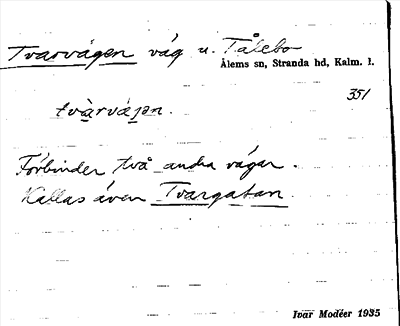 Tvärvägen väg u. Tålebo
Ålems sn, Stranda hd, Kalm. l.
351
tvà̲rvä́jə̲n.
Förbinder två andra vägar.
Kallas även Tvärgatan.
Ivar Modéer 1935